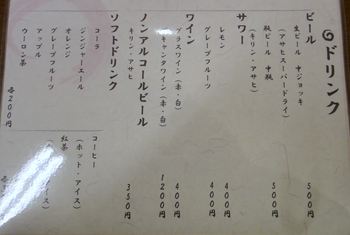 ドリンク
ビール
生ビール 中ジョッキ 500円
(アサヒスーパードライ)
瓶ビール 中瓶 500円
(キリン・アサヒ)
サワー
レモン 400円
グレープフルーツ 400円
ワイン
グラスワイン(赤・白) 400円
キャンタワイン(赤・白) 1200円
ノンアルコールビール
キリン・アサヒ 350円
ソフトドリンク
コーラ
ジンジャーエール
オレンジ
グレープフルーツ
アップル
ウーロン茶
各200円
コーヒー
(ホット・アイス)
紅茶